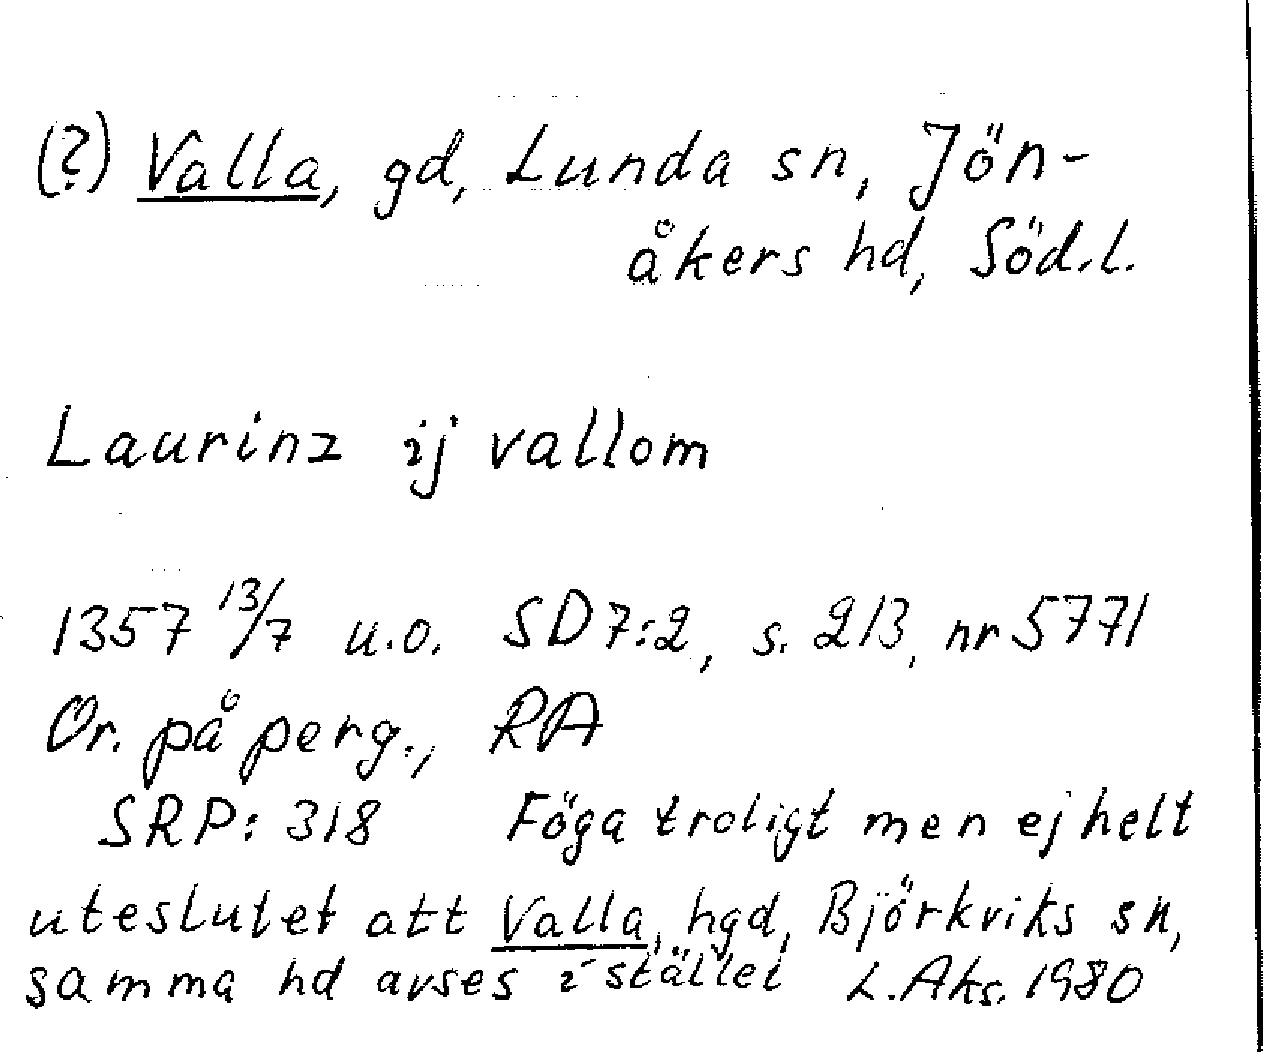 (?) Valla, gd, Lunda sn, Jön-
åkers hd, Söd.l.
Laurinz ij vallom
1357 13/7 u.o. SD 7:2, s. 213, nr 5771
Or. på perg., RA
SRP: 318 Föga troligt men ej helt
uteslutet att Valla, hgd, Björkviks sn,
samma hd avses i stället L.Aks. 1980